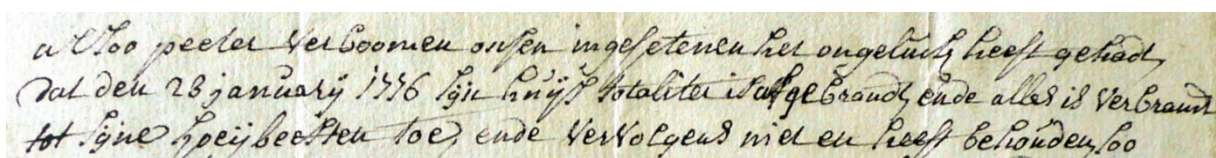 alsoo peeter Verboomen onsen ingesetenen het ongeluck heeft gehadt,
dat den 28 january 1776 sijn huijs totaliter is afgebrandt, ende alles is Verbrandt
tot sijne hoeijbeesten toe, ende Vervolgens niet en heeft behouden, soo